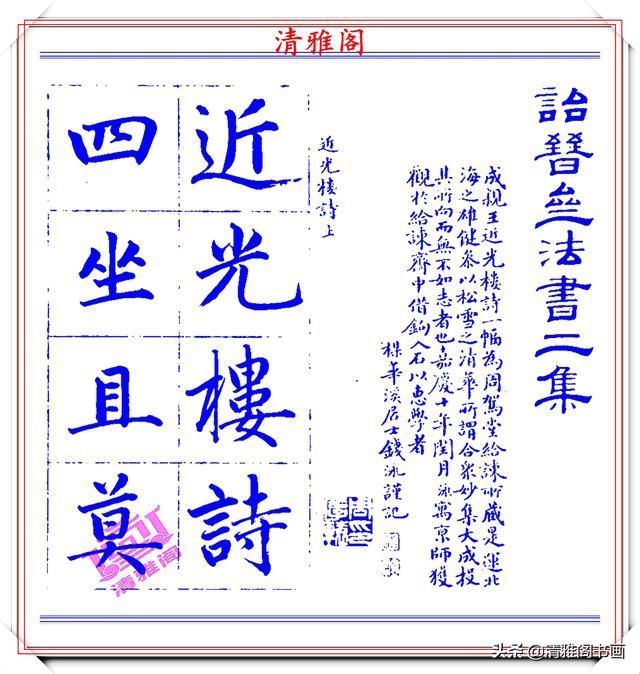 清雅阁
詒晉齋法書二集
成親王近光樓詩一幅為周駕堂給諫所藏是運北
海之雄健參以松雪之清華所謂合衆妙集大成投
其所向而無不如志者也嘉慶十年閏月泳寓京師獲
觀於給諫齋中借鉤入石以惠學者
楳華溪居士錢泳謹記
近光樓詩上
近光樓詩
四坐且莫
清雅阁
头条 @清雅阁书画